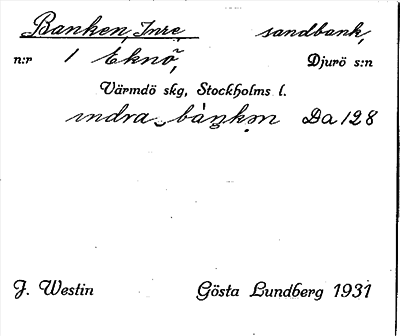 Banken, Inre sandbank,
n:r 1 Eknö, Djurö s:n
Värmdö skg, Stockholms l.
indra bànkən Da 128
J. Westin Gösta Lundberg 1931